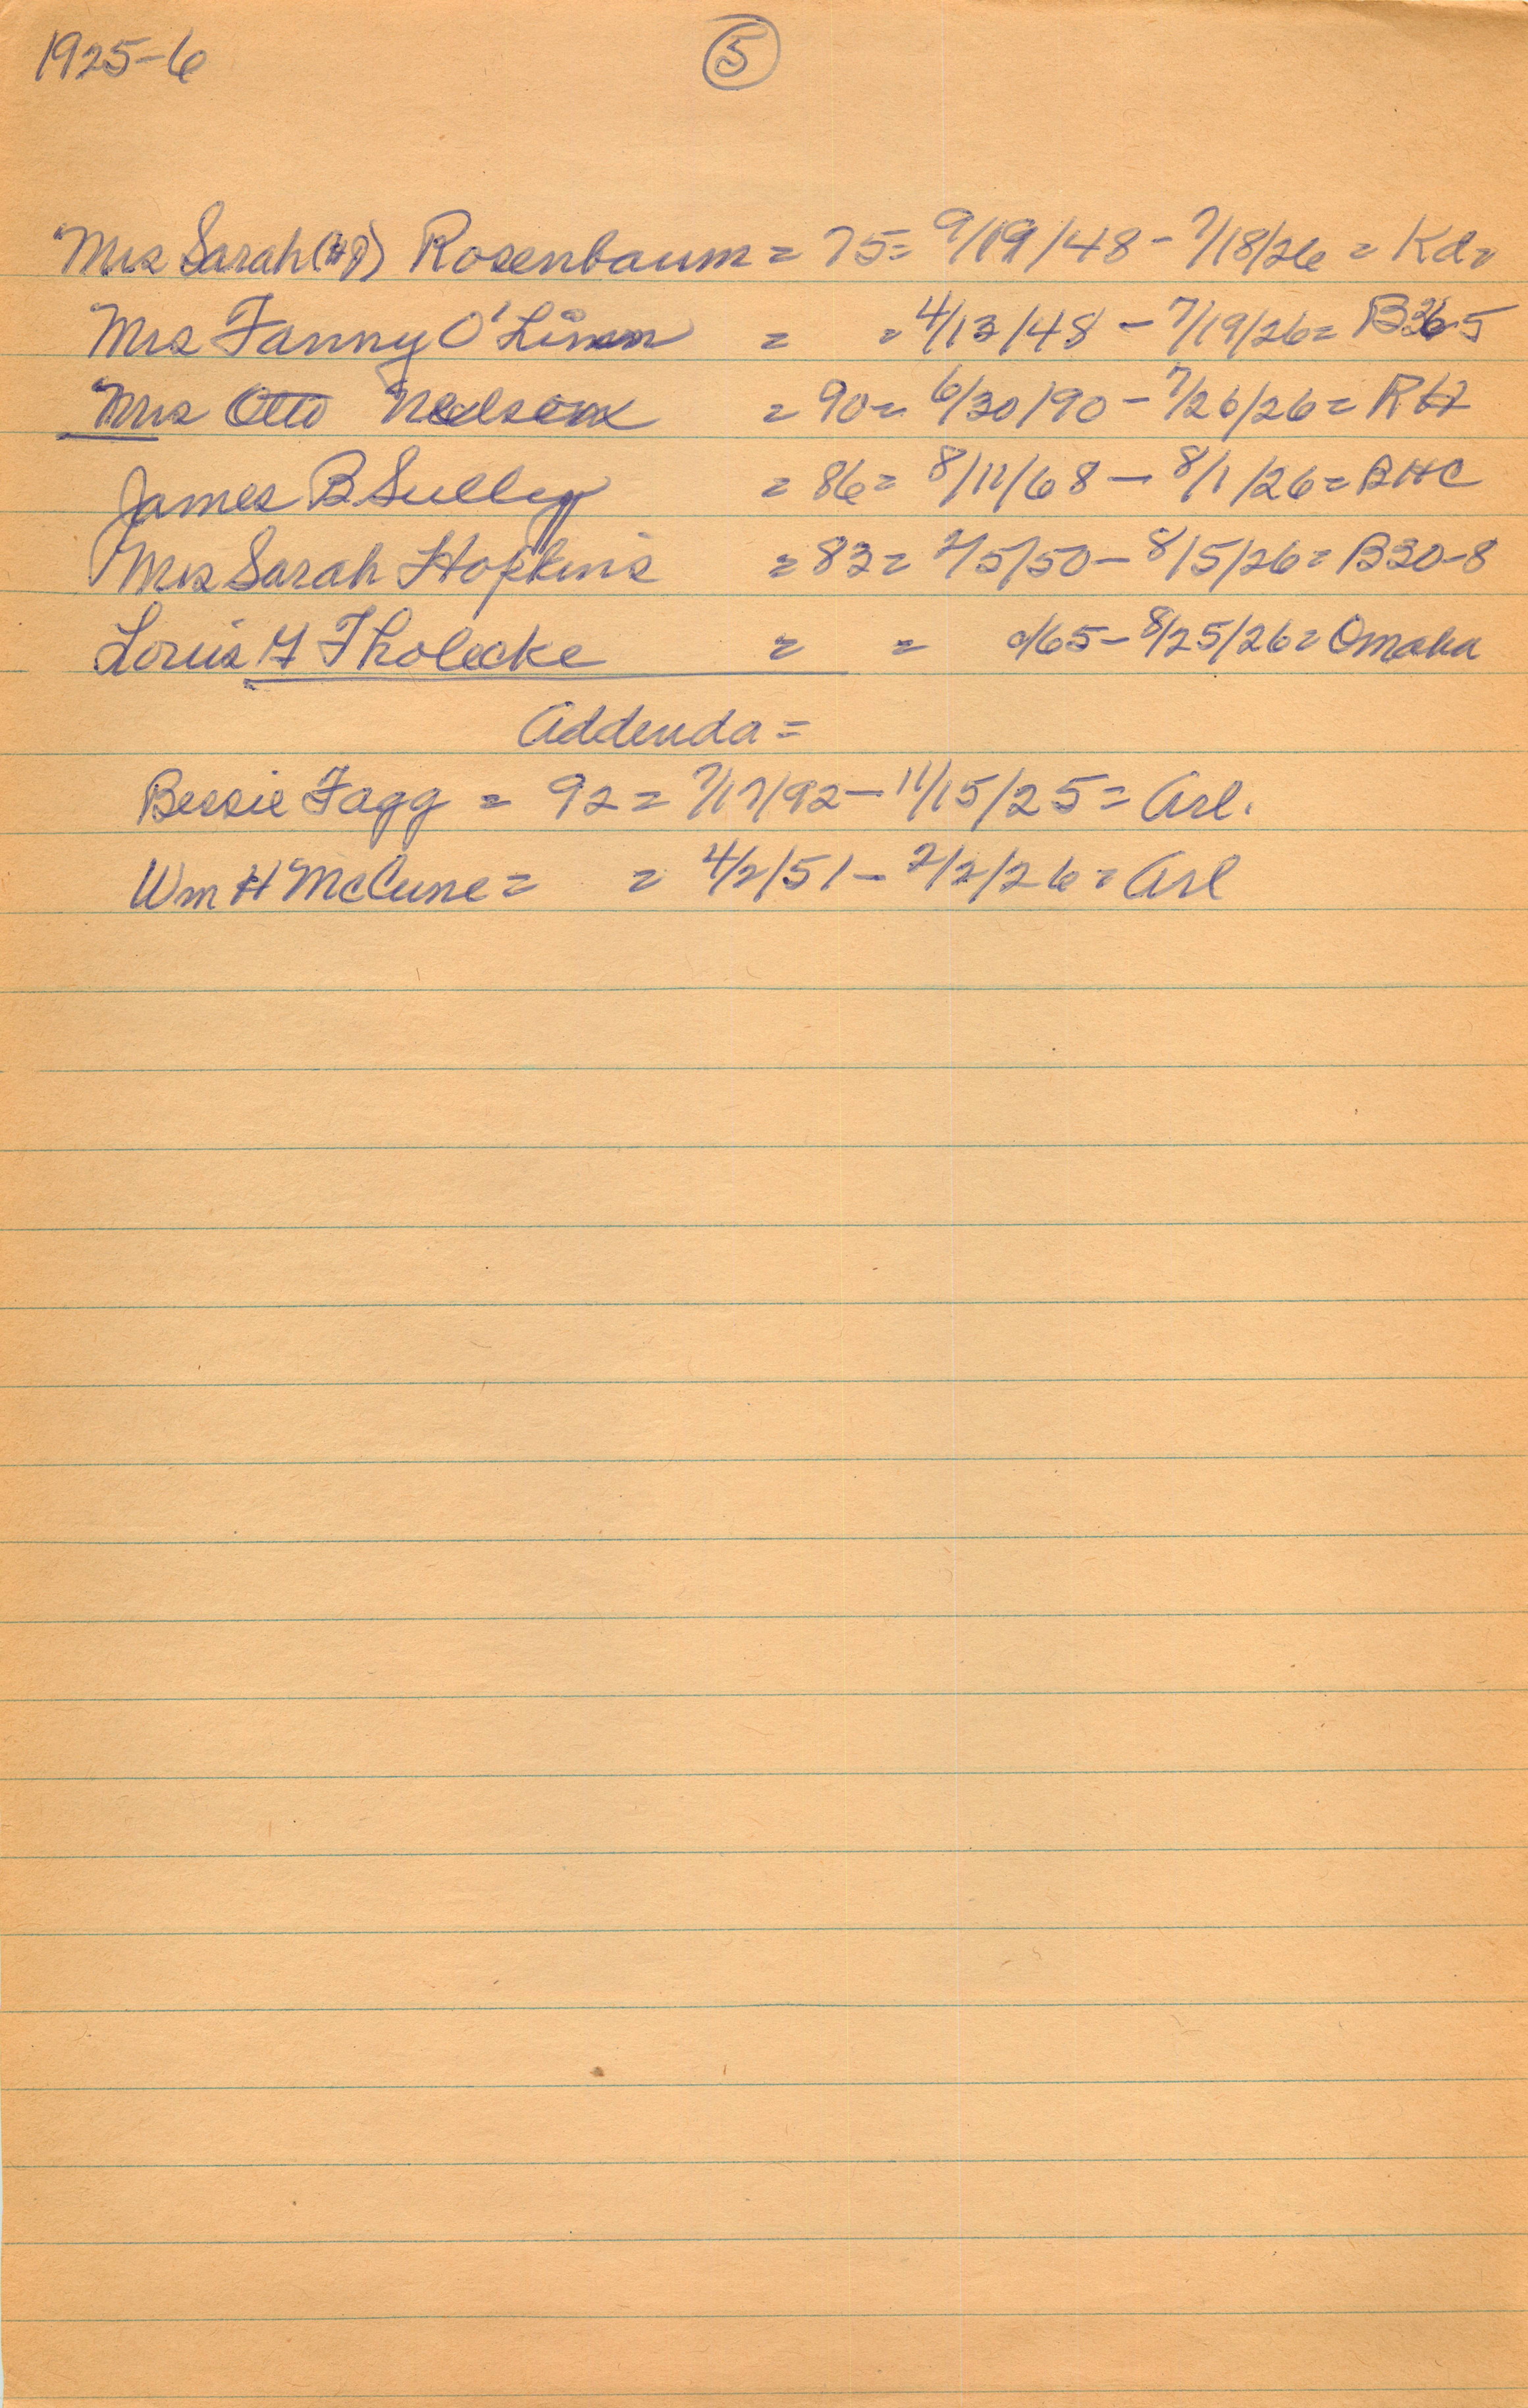 1925-6
5
Mrs Sarah (HP) Rosenbaum = 75 = 9/19/48 - 7/18/26 = Kd=
Mrs Fanny O'Linn = = 4/13/48 - 7/19/26 = B36-5
Mrs Otto Neilson = 90 = 6/30/90 - 7/26/26 = RH
James B Sulley = 86 = 8/11/68 - 8/1/26 = BHC
Mrs Sarah Hopkins = 83 = 2/5/50 - 8/5/26 = B30-8
Louis H Tholecke = = d/65 - 8/25/26 = Omaha
Addenda =
Bessie Fagg = 92 = 7/17/92 - 11/15/25 = Arl.
Wm H McCune = = 4/2/51 - 2/2/26 = Arl